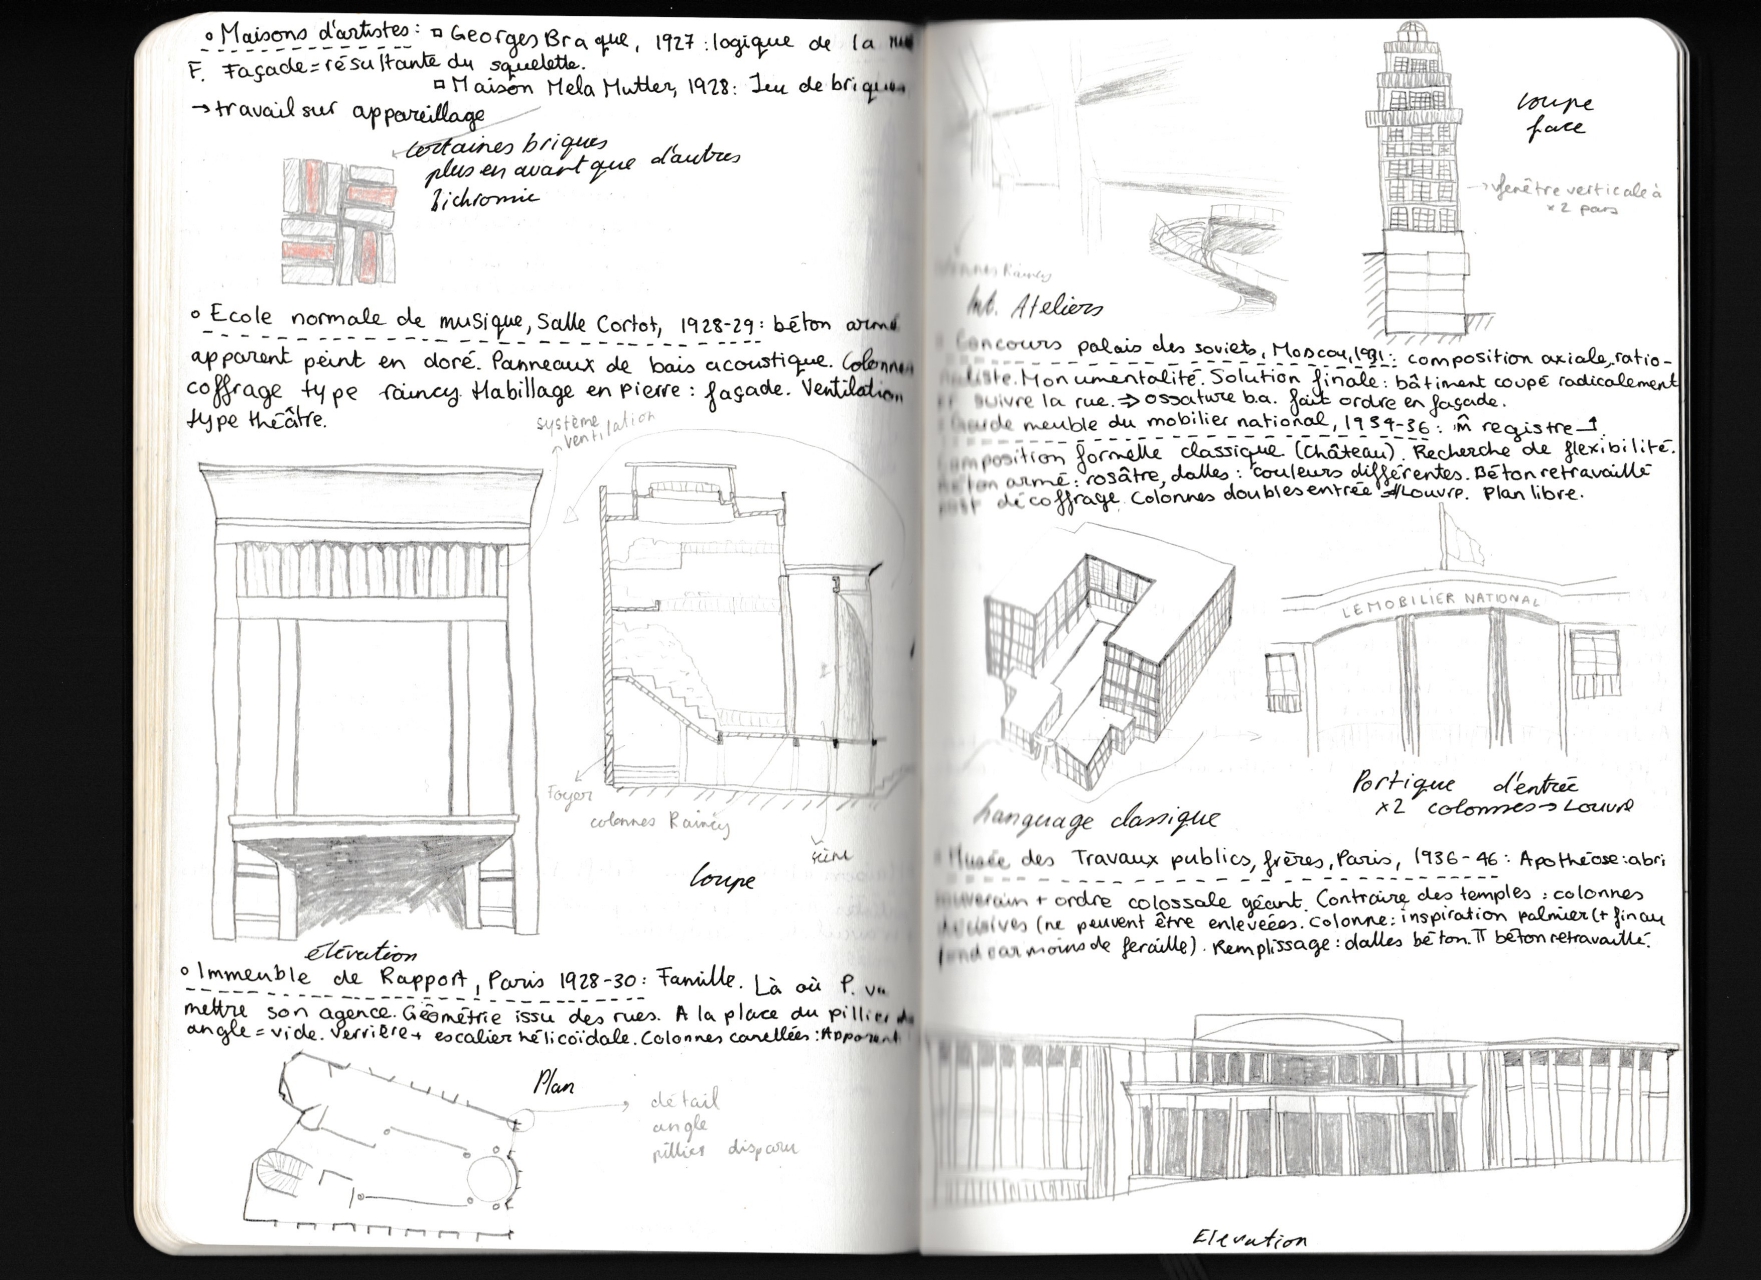 ° Maisons d'artistes : ▫ Georges Braque, 1927 : logique de la
F. Façade = résultante du squelette.
▫ Maison Mela Mutter, 1928 : Jeu de briques
→ travail sur appareillage
certaines briques
plus en avant que d'autres
Bichromie
° Ecole normale de musique, Salle Cortot, 1928-29 : béton armé
apparent peint en doré. Panneaux de bois acoustique. Colonnes
coffrage type raincy. Habillage en Pierre : façade. Ventilation
type théâtre.
système
ventilation
Foyer
colonnes Raincy
scène
Coupe
élévation
° Immeuble de Rapport, Paris 1928-30 : Famille. Là où P. va
mettre son agence. Géométrie issu des rues. A la place du pillier
angle = vide. Verrière + escalier hélicoïdale. Colonnes canellées : Apparent
Plan
détail
angle
pillier disparu
Raincy
Int. Ateliers
coupe
face
→ fenêtre verticale à
x2 pans
° Concours palais des soviets, Moscou, 1931 : composition axiale, ratio-
naliste. Monumentalité. Solution finale : bâtiment coupé radicalement
suivre la rue. ⇒ ossature b.a. fait ordre en façade.
° Garde meuble du mobilier national, 1934-36 : m̂ registre ↑.
Composition formelle classique (Château). Recherche de flexibilité.
Béton armé : rosâtre, dalles : couleurs différentes. Béton retravaillé
post décoffrage. Colonnes doubles entrée Louvre. Plan libre.
LE MOBILIER NATIONAL
Language classique
Portique d'entrée
x2 colonnes → Louvre
° Musée des Travaux publics, frères, Paris, 1936-46 : Apothéose : abri
souverain + ordre colossale géant. Contraire des temples : colonnes
décisives (ne peuvent être enlevées. Colonne : inspiration palmier (+ fin au
fond car moins de feraille). Remplissage : dalles béton. π béton retravaillé.
Elevation